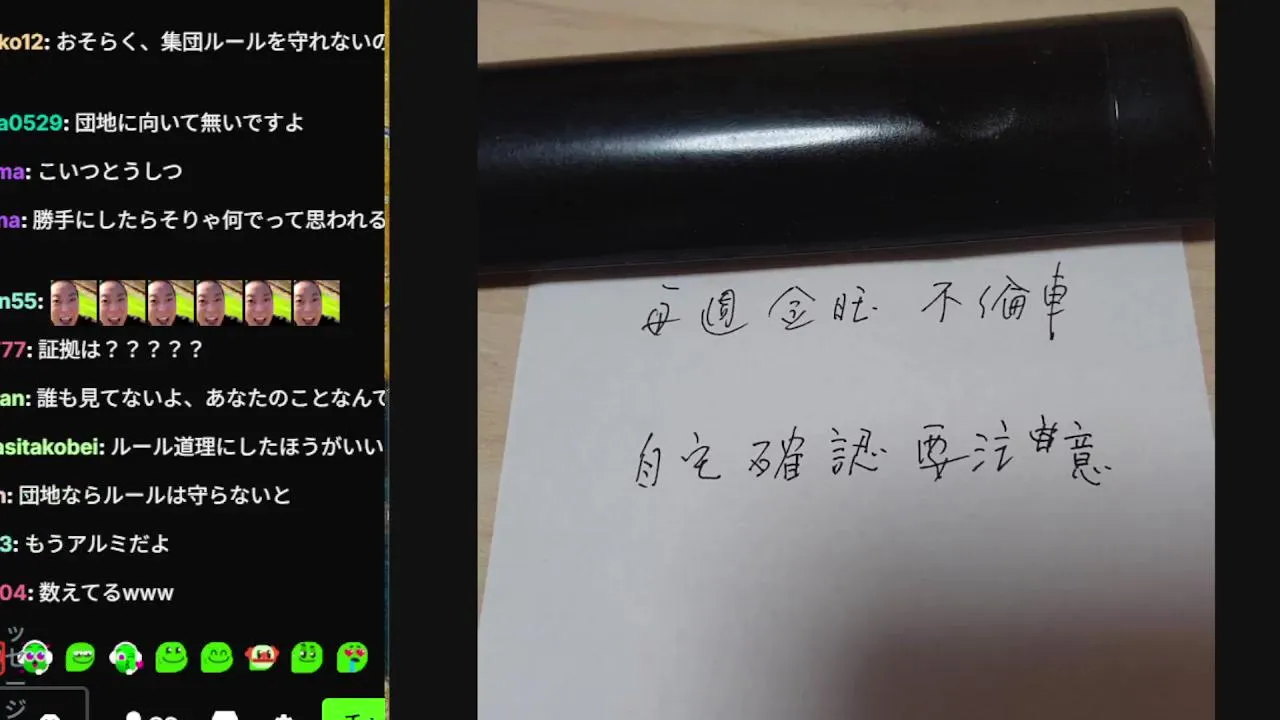 ko12: おそらく、集団ルールを守れないの
a0529: 団地に向いて無いですよ
ma: こいつとうしつ
na: 勝手にしたらそりゃ何でって思われる
n55:
77: 証拠は？？？？？
an: 誰も見てないよ、あなたのことなんて
asitakobei: ルール道理にしたほうがいい
n: 団地ならルールは守らないと
3: もうアルミだよ
04: 数えてるwww
ッセージ
毎週 金旺 不倫車
自宅確認要注意